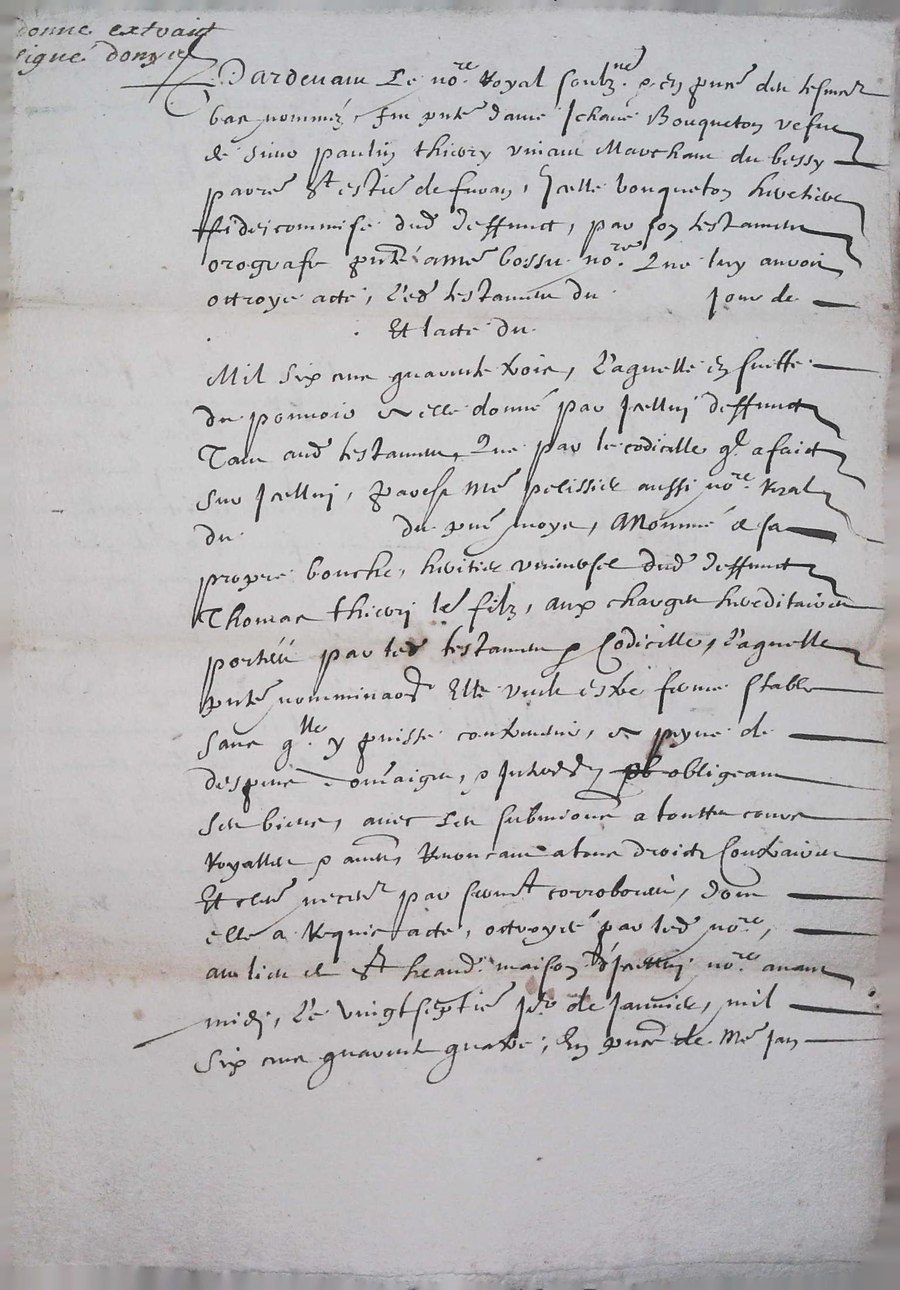 donne extraict
signé donyer
Pardevant Le no.re Royal soubz.né & en pnce des tesmoingz
bas nommez, fut pnte dame Jehane Bouqueton vefve
de sieur paulin thiery vivant Marchant du bessy
parre St estie de furan, Icelle bouqueton heretiere
fideicommise dud deffunct, par son testament
orografe pnté a me bossu no.re Que luy auroit
ottroye acte, Led testament du jour de
Et lacte du
Mil six cens quarente trois, Laquelle en suitte
du pouvoir a elle donné par Icelluy deffunct
Tant aud testament, Que par le codicille ql a faict
sur Icelluy, par Me pelissier aussi no.re Royal
du du pnt moys, A Nommé de sa
propre bouche, heritier universel dud deffunct
Thomas thiery le filz, aux charges hereditaires
portées par led testament & Codicille, Laquelle
pnte nomminaon Elle veult estre ferme stable
sans q.lle y puisse contrevenir, a peyne de
despens domaiges, & Interestz obligeant
ses biens, avec Les submions a touttes cours
Royalles & autres, Renonceant a tous droictz Contraires
Et par sermt corroborées, dont
elle a Requis acte, ottroyée par led no.re,
au lieu de St heand. maison d'Icelluy no.re avant
midy, Le vingtseptie jor de Janvier, mil
six cens quarente quatre; En pnce de Me Jan